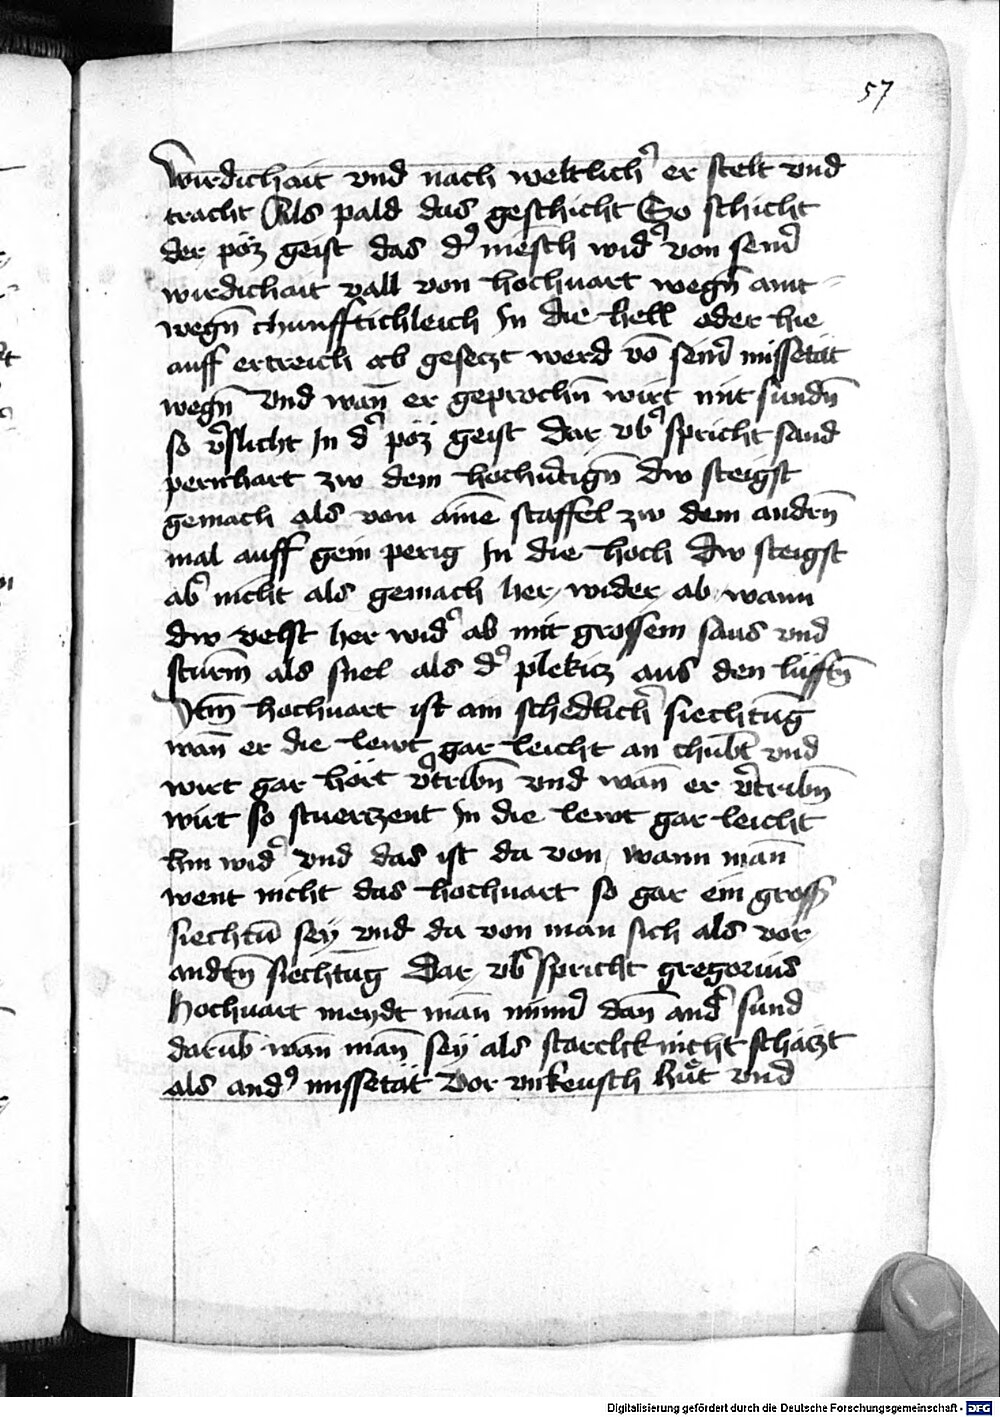 57
wirdichait vnd nach weltlich' er stelt vnd
tracht Als pald das geschicht So schicht
der pöz geist das d' mesch wid' von sem'
wirdichait vall von hochuart wegn̄ amt
wegn̄ chunfftichleich In die hell oder hie
auff ertreich ab geseczt werd vō seim' missetät
wegn̄ Vnd wān er geprochn̄ wirt mit sundn̄
so v'slicht In d' pöz geist Dar vb' spricht sand
pernhart zw dem hochu'tign̄ Dw steigst
gemach als von aīme staffel zw dem andrn̄
mal auff gein perig In die hoch Dw steigst
ab' nicht als gemach her wider ab wann
dw velst her wid' ab mit grossem saus vnd
sturm̄ als snel als d' plekicz aus den lüfftn̄
Itm̄ hochuart ist ain schedlich' siechtūg
wān er die lewt gar leicht an chūbt vnd
wirt gar hört v'tribn̄ vnd wān er v'tribn̄
wirt so stuerczent In die lewt gar leicht
hin wid' vnd das ist da von wann mān
went nicht das hochuart so gar ein gross
siechtū sey vnd da von man sich als vor
andrn̄ siechtūg Dar vb' spricht gregorius
Hochuart meydt mān mind' dān and' sund
darūb wān mān sey als starckk nicht schäczt
als and' missetät Vor vnkeusch hüt vnd
Digitalisierung gefördert durch die Deutsche Forschungsgemeinschaft - DFG